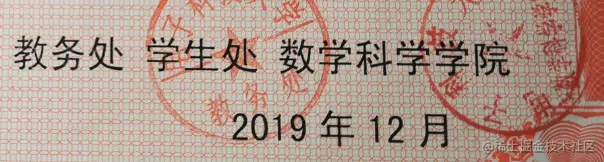 教务处 学生处 数学科学学院
教务处
2019 年 12 月
@稀土掘金技术社区